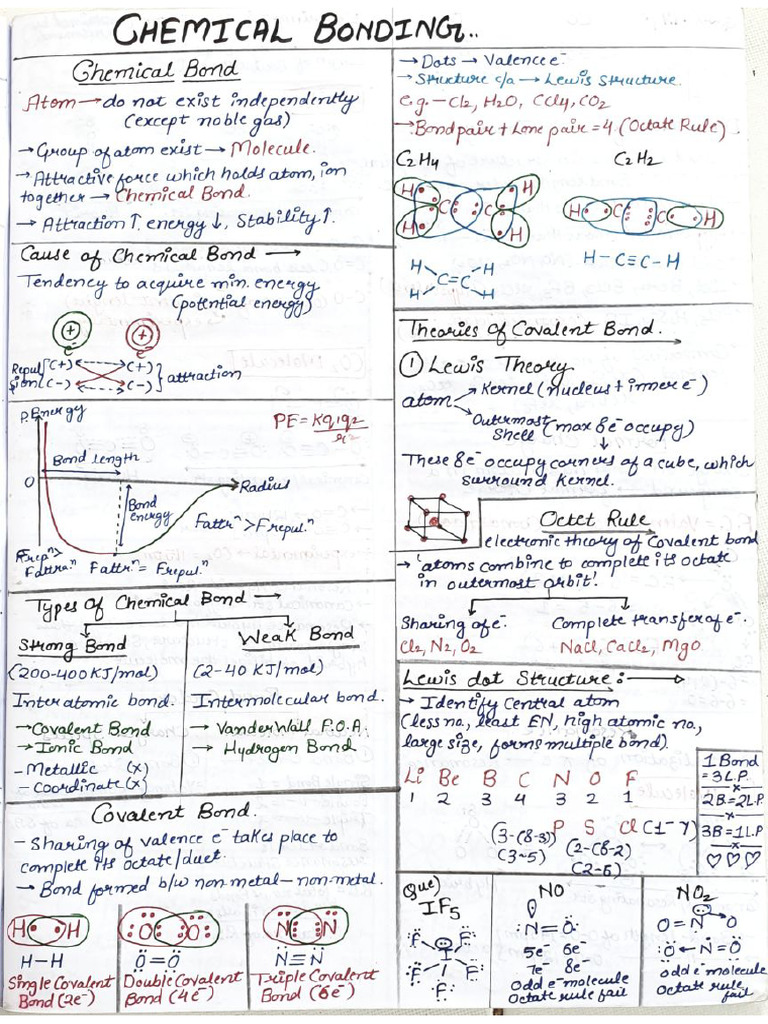 CHEMICAL BONDING..
Chemical Bond
Atom → do not exist independently
(except noble gas)
→ Group of atom exist → Molecule.
→ Attractive force which holds atom, ion
together → Chemical Bond.
→ Attraction ↑ energy ↓, Stability ↑.
Cause of Chemical Bond →
Tendency to acquire min. energy
(potential energy)
+ +
e⁻ e⁻
Repul (+) (+)
sion (-) (-) } attraction
P.Energy
PE = Kq1q2/r²
Bond length
0
Radius
Bond
energy
Fattrⁿ > Frepulⁿ
Frepⁿ >
Fattraⁿ Fattrⁿ = Frepulⁿ
Types of Chemical Bond →
Strong Bond
(200-400 KJ/mol)
Interatomic bond.
→ Covalent Bond
→ Ionic Bond
- Metallic (x)
- coordinate (x)
Weak Bond
(2-40 KJ/mol)
Intermolecular bond.
→ Vander Wall F.O.A.
→ Hydrogen Bond
Covalent Bond.
- Sharing of valence e⁻ takes place to
complete its octate/duet.
→ Bond formed b/w non-metal – non-metal.
H H
H-H
Single Covalent
Bond (2e⁻)
O O
Ö=Ö
Double Covalent
Bond (4e⁻)
N N
N̈≡N̈
Triple Covalent
Bond (6e⁻)
→ Dots → Valence e⁻
→ Structure c/a → Lewis structure.
e.g. – Cl2, H2O, CCl4, CO2
→ Bond pair + Lone pair = 4. (Octate Rule)
C2H4 C2H2
H H
C C
H H
H C C H
H H
C=C
H H
H-C≡C-H
Theories of Covalent Bond.
① Lewis Theory
atom
Kernel (nucleus + inner e⁻)
Outermost
Shell (max 8e⁻ occupy)
These 8e⁻ occupy corners of a cube, which
surround Kernel.
Octet Rule
electronic theory of Covalent bond
→ 'atoms combine to complete its octate
in outermost orbit'.
Sharing of e⁻.
Cl2, N2, O2
Complete transfer of e⁻.
NaCl, CaCl2, MgO.
Lewis dot Structure :→
→ Identify Central atom
(less no., least EN, high atomic no.,
large size, forms multiple bond).
Li Be B C N O F
1 2 3 4 3 2 1
P S Cl (1-7)
(3-(8-3)) (2-(8-2)
(3-5) (2-6)
1 Bond
= 3 L.P.
x
2B = 2L.P
x
3B = 1 L.P
x
♡♡♡
Que
IF5
F I F
F F
F
NO
N=O
5e⁻ 6e⁻
7e⁻ 8e⁻
Odd e⁻ molecule
Octate rule fail
NO2
O=N→O
O←N=O
odd e⁻ molecule
Octate rule
fail